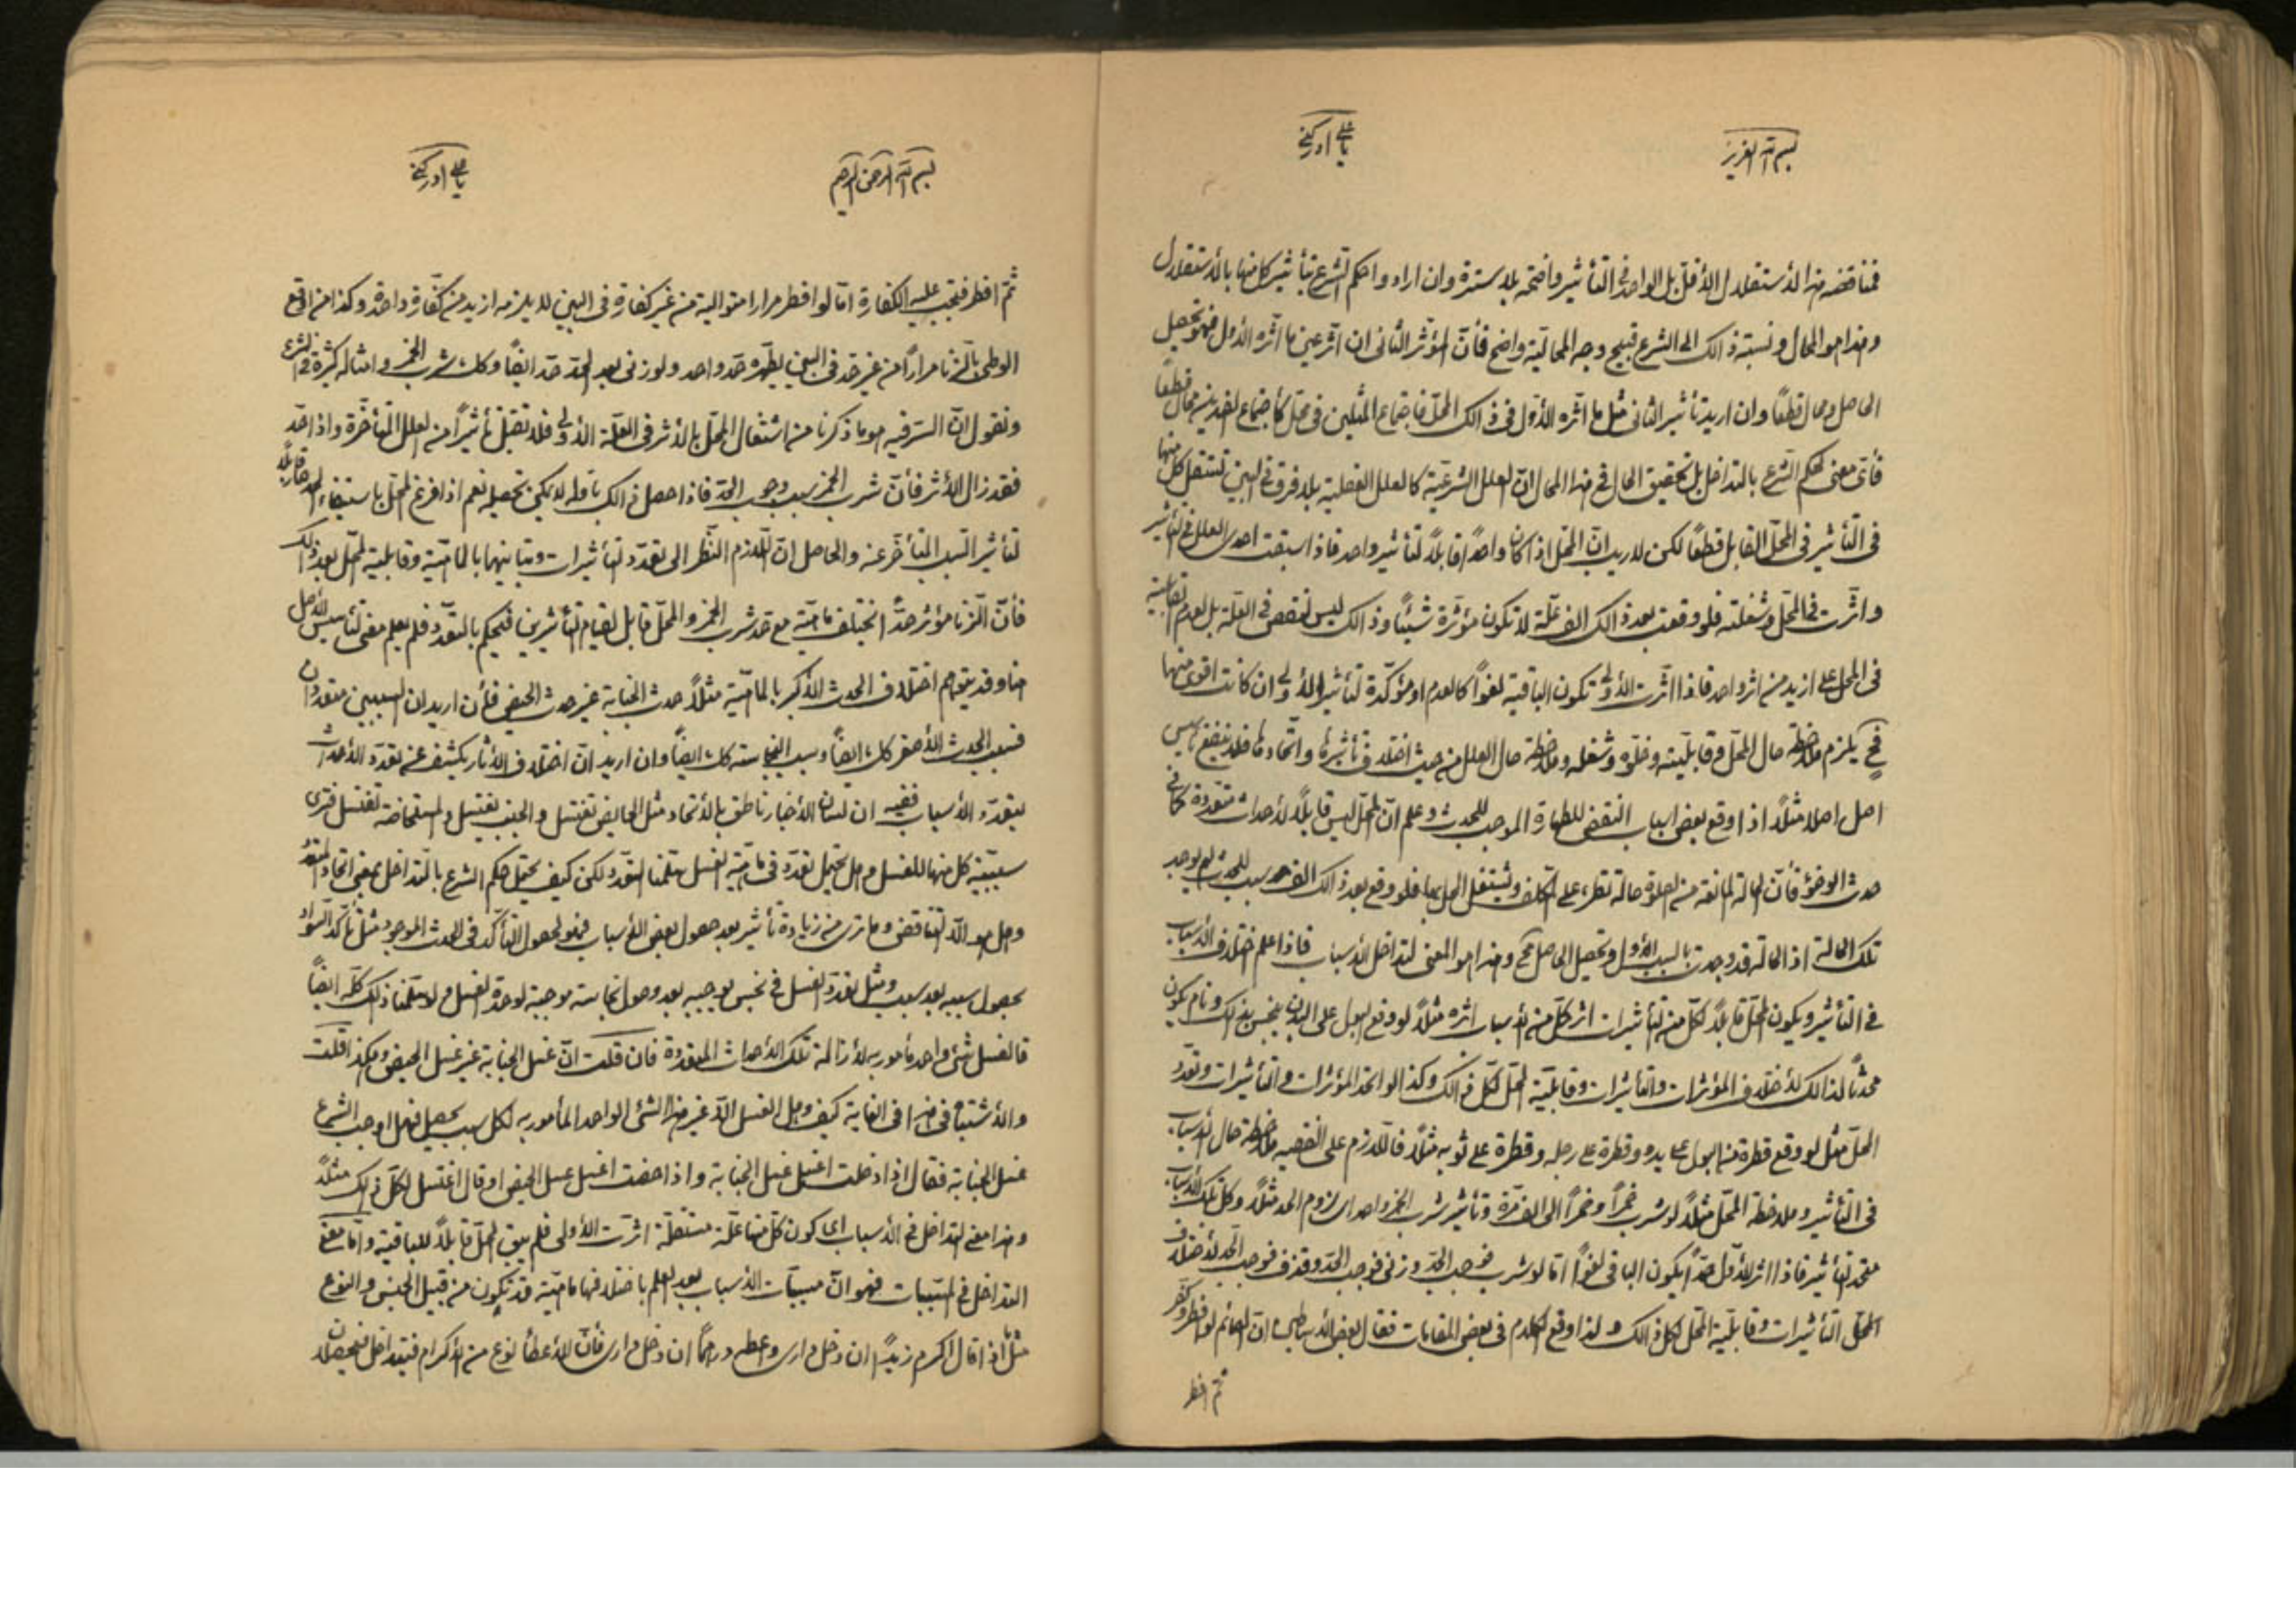 بسم الله العزيز
يا علي ادركني
فمناقضه هذا الأستقلال الأقل بل الواحد في التأثير واضحة بلا سترة وان اراد واحكم الشرع بتأثير كل منها بالأستقلال
وهذا هو المحال ونسبة ذالك الى الشرع قبيح وجه المحالية واضح فأن المؤثر الثاني ان اثر عين ما اثره الأول فهو تحصيل
الحاصل ومحال قطعًا وان اريد تأثير الثاني مثل ما اثره الأول في ذالك المحل فاجتماع المثلين في محل كأجتماع الضدين محال قطعًا
فأى معنى لحكم الشرع بالتداخل بل تحقيق الحال في هذا المحال ان العلل الشرعية كالعلل العقلية بلا فرق في البين تستقل كل منها
في التأثير في المحل القابل قطعًا لكن لا ريب ان المحل اذا كان واحدًا قابلًا لتأثير واحد فاذا استبقت احدى العلل في التأثير
واثرت في المحل وشغلته فلو وقعت بعد ذالك الف علة لا تكون مؤثرة شيئًا وذالك ليس لنقص في العلة بل لعدم القابلية
في المحل على ازيد من اثر واحد فاذا اثرت الأولى تكون الباقية لغوًا كالعدم او مؤكدة لتأثير الأولى وان كانت اقوى منها
فح يلزم ملاحظة حال المحل وقابليته وخلوه وشغله وملاحظة حال العلل من حيث اختلاف تأثيرها واتحادها فلا ينفع تأسيس
اصل اصلا مثلًا اذا وقع بعض اسباب النقض للطهارة الموجب للحدث وعلم ان المحل ليس قابلًا لأحداث متعددة كما في
حدث الوضوء فأن الحالة المانعة من الصلوة حالة تطرء على المكلف ويشتغل المحل بها فلو وقع بعد ذالك الف سبب للحدث لم يوجد
تلك الحالة اذ الحالة قد وجدت بالسبب الأول وتحصيل الحاصل مح وهذا هو المعنى لتداخل الأسباب فاذا علم اختلاف الأسباب
في التأثير ويكون المحل قابلًا لكل من التأثيرات اثر كل من الأسباب اثره مثلًا لو وقع البول على البدن ينجس بذالك ونام يكون
محدثًا لذالك لأختلاف المؤثرات والتأثيرات وقابلية المحل لكل ذالك وكذا لو اتحد المؤثرات والتأثيرات وتعدد
المحل مثل لو وقع قطرة من البول على يده وقطرة على رجله وقطرة على ثوبه مثلًا فاللازم على الفقيه ملاحظة حال الأسباب
في التأثير وملاحظة المحل مثلًا لو شرب خمرًا وخمرًا الى الف مرة وتأثير شرب الخمر واحد اى لزوم الحد مثلًا وكل تلك الأسباب
متحد التأثير فاذا اثر الأول حدًا يكون الباقي لغوًا اما لو شرب فوجب الحد وزنى فوجب الحد وقذف فوجب الحد لأختلاف
المحل التأثيرات وقابلية المحل لكل ذالك ولذا وقع الكلام في بعض المقامات فقال بعض الأساطين ان الصائم لو افطر وكفر
ثم افطر
بسم الله الرحمن الرحيم
يا علي ادركني
ثم افطر فتجب عليه الكفارة اما لو افطر مرارا متوالية من غير كفارة في البين لا يلزمه ازيد من كفارة واحدة وكذا من اوقع
الوطى بالزنا مرارًا من غير حد في البين يطهره حد واحد ولو زنى بعد الحد حد ايضًا وكك شرب الخمر وامثاله كثيرة في الشرع
ونقول ان السر فيه هو ما ذكرنا من اشتغال المحل بالأثر في العلة الأولى فلا تقبل تأثيرًا من العلل المتأخرة واذا حد
فقد زال الأثر فأن شرب الخمر سبب وجوب الحد فاذا حصل ذالك باوله لا يمكن تحصيله نعم اذا فرغ المحل باستيفاء الحد صار قابلًا
لتأثير السبب المتأخر عنه والحاصل ان اللازم النظر الى تعدد التأثيرات وتباينها بالماهية وقابلية المحل بعد ذلك
فأن الزنا مؤثر حدًا تختلف ماهيته مع حد شرب الخمر والمحل قابل لقيام التأثيرين فيحكم بالتعدد فلم يعلم معنى لتأسيس الأصل
هنا وقد يتوهم اختلاف الحدث الأكبر بالماهية مثلًا حدث الجنابة غير حدث الحيض فأن اريد ان السببين متعددان
فسبب الحدث الأصغر كك ايضًا وسبب النجاسة كك ايضًا وان اريد ان اختلاف الأثار يكشف عنه تعدد الأحداث
بتعدد الأسباب ففيه ان لسان الأخبار ناطق بالأتحاد مثل الحايض تغتسل والجنب يغتسل والمستحاضة تغتسل فترى
سببية كل منها للغسل وهل يحتمل تعدد في ماهية الغسل سلمنا التعدد لكن كيف يحتمل حكم الشرع بالتداخل بمعنى اتحاد المتعدد
وهل هو الا التناقض وما ترى من زيادة تأثير بعد حصول بعض الأسباب فهو لحصول التأكد في الحدث الموجود مثل تأكد السواد
بحصول سببه بعد سبب ومثل تعدد الغسل في نجس يوجبه بعد وصول نجاسة موجبة لوحدة الغسل ولو سلمنا ذلك كله ايضًا
فالغسل شئ واحد مأمور به لأزالة تلك الأحداث المتعددة فان قلت ان غسل الجنابة غير غسل الحيض وهكذا قلت
والأشتباه في هذا في الغاية كيف وهل الغسل الا غير هذا الشئ الواحد المأمور به لكل سبب يحصل فهل اوجب الشرع
غسل الجنابة فقال اذا دخلت اغتسل غسل الجنابة واذا حضت اغتسل غسل الحيض او قال اغتسل لكل ذلك مثلًا
وهذا معنى التداخل في الأسباب اى كون كل منها علة مستقلة اثرت الأولى فلم يبق المحل قابلًا للباقية واما معنى
التداخل في المسببات فهو ان مسببات الأسباب بعد العلم باختلافها ماهية قد تكون من قبيل الجنس والنوع
مثل اذا قال اكرم زيدًا ان دخل دارى واعطه درهمًا ان دخل دارى فأن الأعطاء نوع من الأكرام فيتداخل فيحصلان